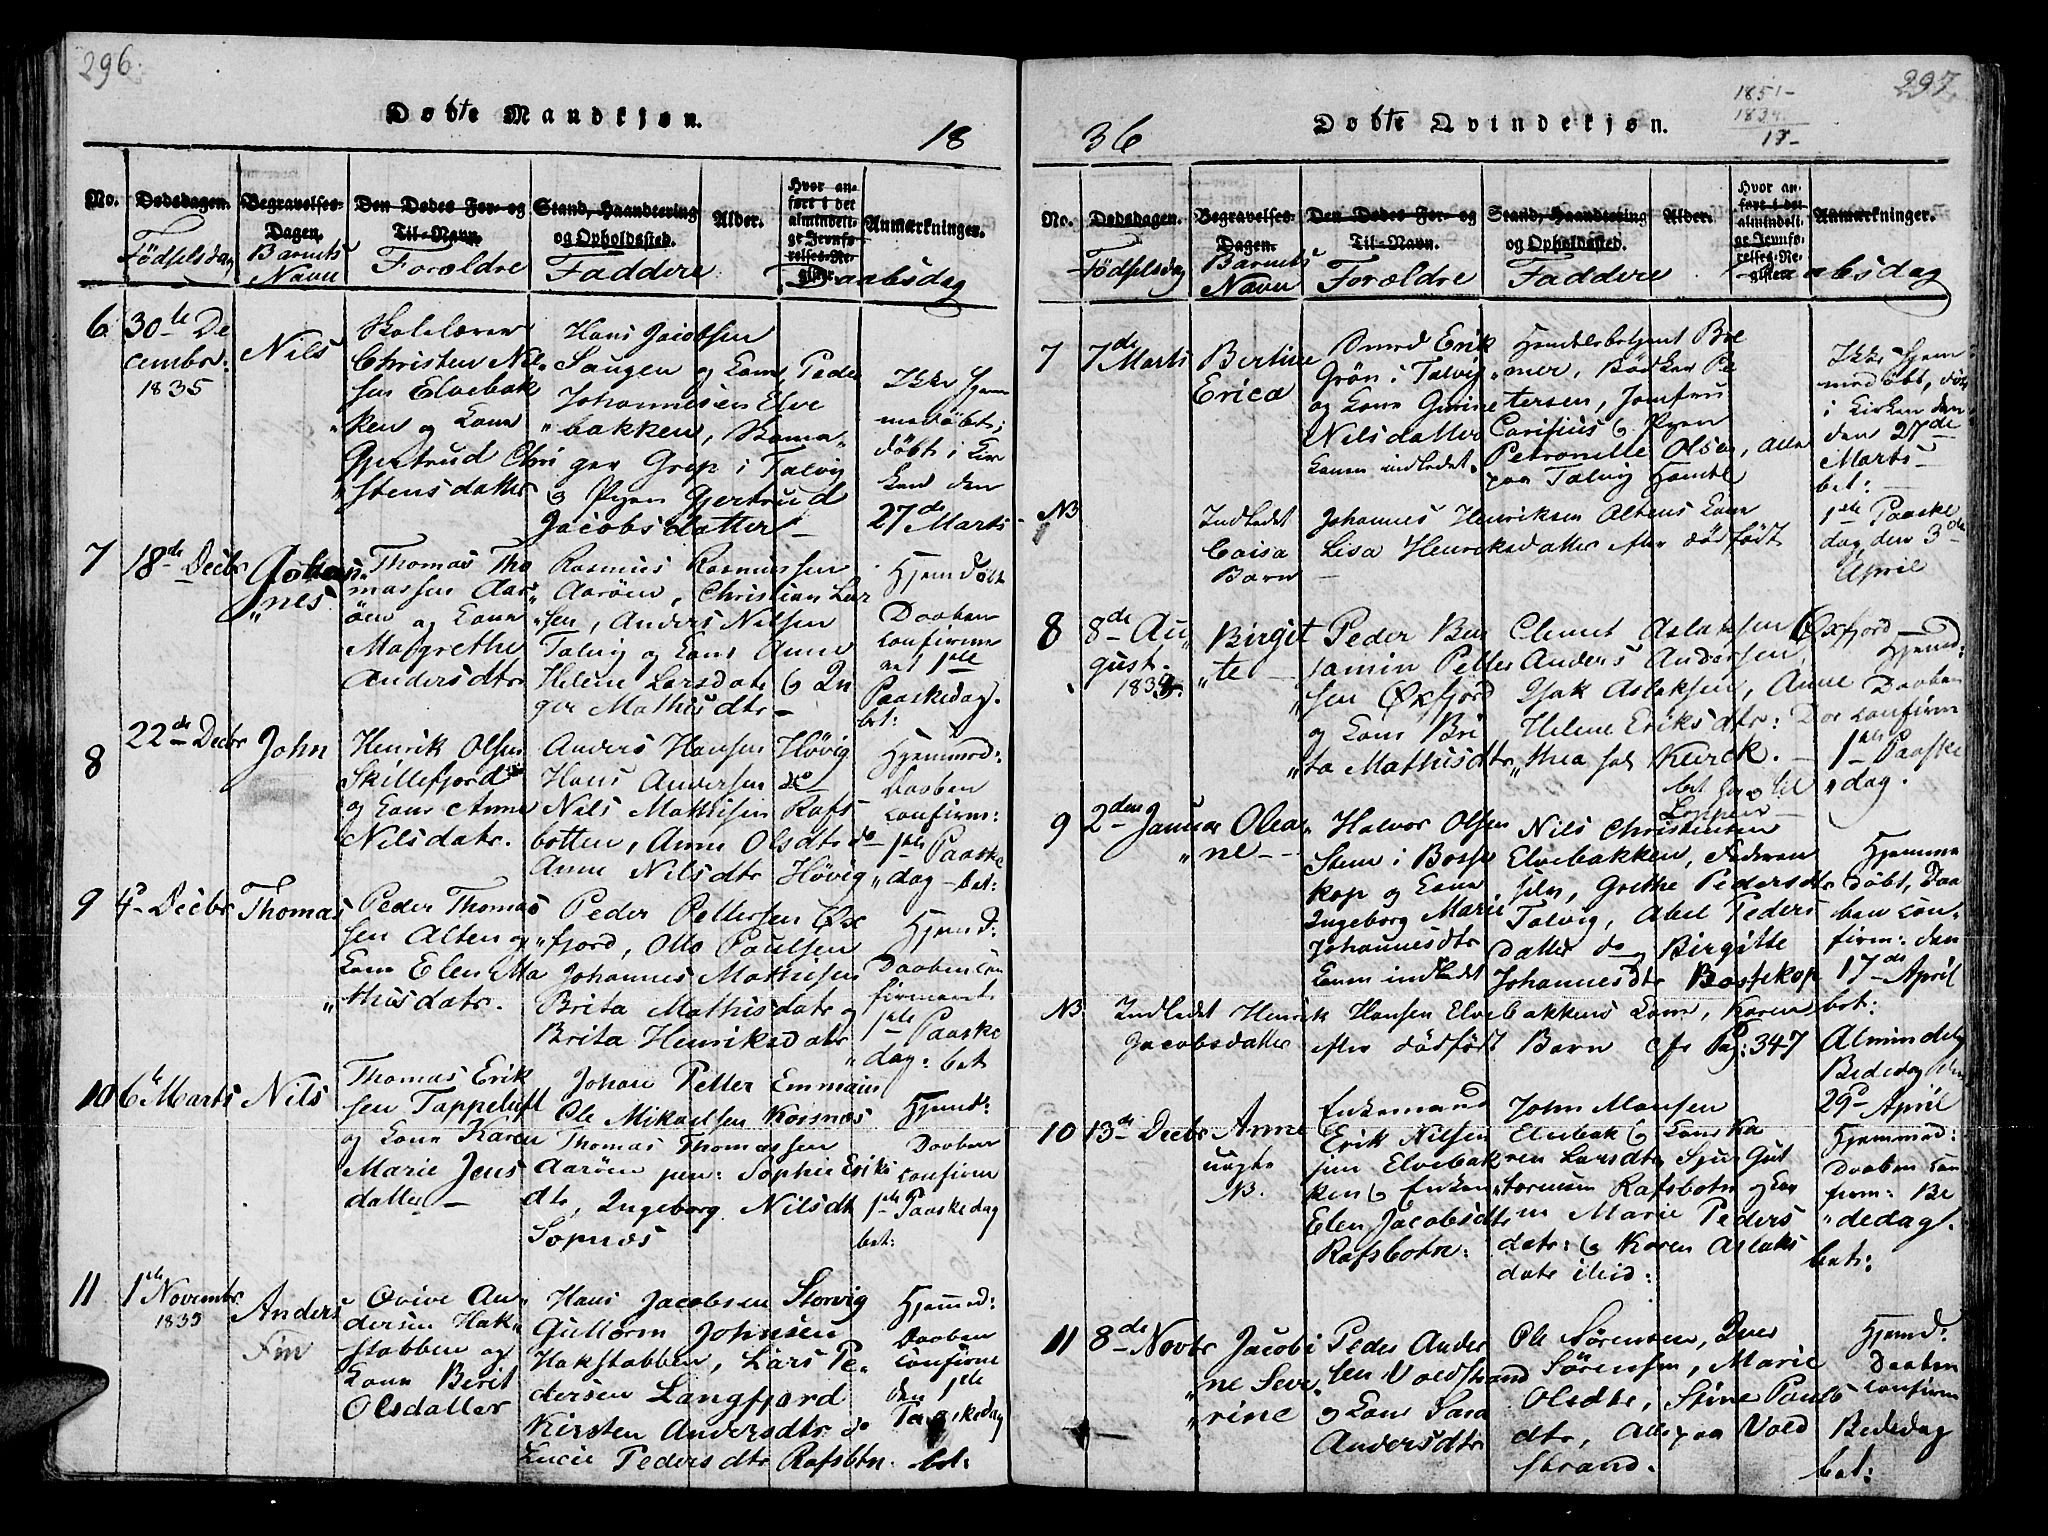 296.
Døbte Mandkjøn.
18
No.
Dødsdagen.
Födselsdag
Begravelses-
Dagen.
Barnets
Navn
Den Dødes For- og
Til-Navn.
Forældre
Stand, Haandtering
og Opholdssted.
Faddere
Alder.
Hvor an-
ført i det
almindeli-
ge Jevnfø-
relses-Re-
gister.
Anmærkninger.
Daabsdag
6
30te De
cembr:
1835
Nils
Skolelærer
Christen Nil-
sen Elvebak
"ken og Kone
Gjertrud Chri
"stensdatter
Hans Jacobsen
Saugen og Kone, Peder
Johannesen Elve
"bakken, Skoma"
ger Grop i Talvig
og Pigen Gjertrud
Jacobsdatter
Ikke hjem
medöbt,
döbt i Kir
ken den
27de Marts
7
18de Decbr
Johan
"nes
Thomas Tho
massen Aar"
öen og Kone
Margrethe
Andersdtr
Rasmus Rasmussen
Aaröen, Christian Lar
"sen, Anders Nilsen
Talvig og Kone Anne
Helene Larsdatr og In
ger Mathisdtr
Hjemdöbt
Daaben
confirme
ret 1ste
Paaskedag.
bet:
8
22de Decbr
John
Henrik Olsen
Skillefjord
og Kone Anne
Nilsdatr.
Anders Hansen Hövig
Hans Andersen do
Nils Mathisen Rafs
botten, Anne Olsdtr do
Anne Nilsdtr Hövig
Hjemmed:
Daaben
confirm:
1ste Paaske
"dag bet:
9
4de Decbr
Thomas
Peder Thomas
sen Alten og
Kone Elen Ma
"thisdatr.
Peder Pettersen Öx
"fjord, Otto Paulsen
Johannes Mathisen
Brita Mathisdatr og
Brita Henriksdatr
Hjemd:
Daaben con
firmeret
1ste Paaske
"dag: bet
10
6te Marts
Nils
Thomas Erik
sen Tappeluft
og Kone Karen
Marie Jens
datter
Johan Petter
Ole Mikaelsen Korsnæs
Thomas Thomassen
Aaröen jun: Sophie Eriks
dtr, Ingeborg Nilsdt
Sopnæs
Hjemd:
Daaben
confirm
1ste Paaskedag
bet:
11
1ste Novembr
1835
Anders
Fin
Qvive An"
dersen Hak"
stabben og
Kone Berit
Olsdatter
Hans Jacobsen Storvig
Guttorm Johnsen
Hakstabben, Lars Pe"
dersen Langfjord
Kirsten Andersdtr do
Lucie Pedersdtr Rafsbtn.
Hjemmed:
Daaben
confirme
den 1ste
Paaskedag
bet:
297.
1851-
1834.
17-
36
Døbte Qvindekjøn.
No.
Dødsdagen.
Födselsdag
Begravelses-
Dagen.
Barnets
Navn
Den Dødes For- og
Til-Navn.
Forældre
Stand, Haandtering
og Opholdssted.
Faddere
Alder.
Hvor an-
ført i det
almindeli-
ge Jevnfø-
relses-Re-
gister.
Anmærkninger.
Daabsdag
7
7de Marts
Bertine
Erica
Smed Erik
Grön i Talvig
og Kone Gurine
Nilsdatter
Konen indledet.
Handelsbetjent Bre
"mer, Bödker Pe
tersen, Jomfru
Carisius og Pigen
Petronille Olsen, alle
paa Talvig Handel
Ikke hjem
medöbt, döbt
i Kirken den
den 27de
Marts
bet:
NB
Indledet
Caisa
Barn
Johannes Henriksen Altens Kone
Lisa Henriksdatter efter dödfödt
1ste Paaske
dag den 3de
April
8
8de Au"
gust.
Birgit
"te
Peder Ben
jamin Petter
"sen Öxfjord
og Kone Bri
"ta Mathisdtr
Clemet Aslaksen Öxfjord
Anders Andersen,
Isak Aslaksen, Anne
Helene Eriksdtr: Dor
"thea Kurck.
bet til
Loppen
Hjemd:
Daaben
confirm
1ste Paaske
"dag.
9
2den Januar
Olea
"ne
Halvor Olsen
Steen i Bosse
kop og Kone
Ingeborg Marie
Johannesdtr
Konen indledet
Nils Christensen
Elvebakken, Faderen
selv, Grethe Pedersdtr
Talvig, Abel Peders
datter do og Birgitte
Johannesdtr Bossekop
Hjemme
döbt, Daa
ben con"
firm: den
17de April
bet:
NB
Indledet Henrik Hansen Elvebakkens Kone, Karen
Jacobsdatter efter dödfödt Barn cfr Pag: 347
Almindelig
Bededag den
29de April
10
13de Decbr
Anne
uægte
NB.
Enkemand
Erik Nilsen
sen Elvebak
ken og Enken
Elen Jacobsdtr
Rafsbotn:
John Monsen
Elvebak og Kone Ka
ren Larsdtr, Sjur Gut
"tormsen Rafsbotn og Kon
en Marie Peders
datr: og Karen Aslaks
datr ibid:
Hjemmed:
Daaben con
firm: Be
"dedag.
bet:
11
8de Novbr
Jacobi
"ne Seve
"rine
Peder Ander
sen Voldstrand
og Kone Sara
Andersdtr
Ole Sörensen, Iver
Sörensen, Marie
Olsdtr, Stine Pauls
dtr, Alle paa Vold
strand.
Hjemd:
Daaben
confirm
Bededag
bet: